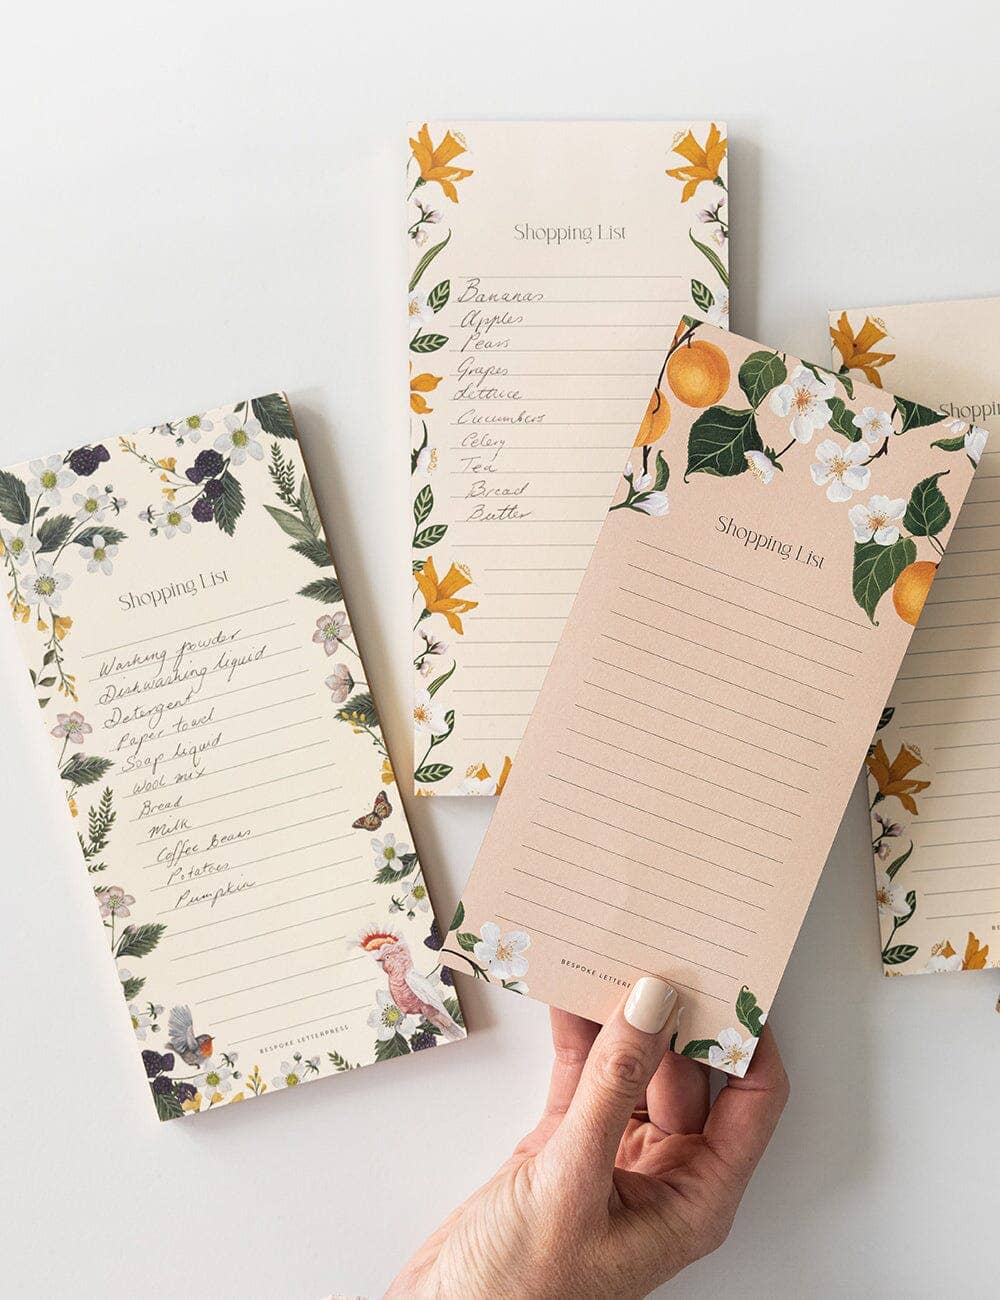 Shopping List
Bananas
Apples
Pears
Grapes
Lettuce
Cucumbers
Celery
Tea
Bread
Butter
Shopping List
Washing powder
Dishwashing liquid
Detergent
Paper towel
Soap liquid
Wool mix
Bread
Milk
Coffee Beans
Potatoes
Pumpkin
BESPOKE LETTERPRESS
Shopping List
BESPOKE LETTERP
Shoppin